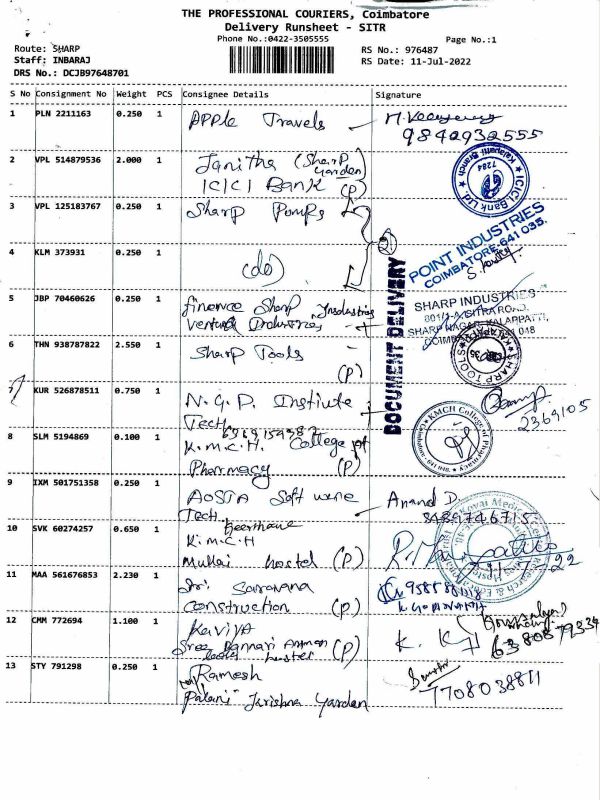 THE PROFESSIONAL COURIERS, Coimbatore
Delivery Runsheet - SITR
Phone No.:0422-3505555
Page No.:1
Route: SHARP
RS No.: 976487
Staff: INBARAJ
RS Date: 11-Jul-2022
DRS No.: DCJB97648701
S No Consignment No Weight PCS Consignee Details Signature
1 PLN 2211163 0.250 1 Apple Travels
9842932555
2 VPL 514879536 2.000 1 Janitha (Sharp Garden)
ICICI Bank (P)
ICICI Bank Ltd. Kalapatti Branch 7284
3 VPL 125183767 0.250 1 Sharp Pumps
POINT INDUSTRIES
COIMBATORE-641 035.
4 KLM 373931 0.250 1 (do)
DOCUMENT DELIVERY
5 JBP 70460626 0.250 1 finance Sharp Industries
Venture Industries
SHARP INDUSTRIES
SHARP NAGAR, KALAPATTI,
6 THN 938787822 2.550 1 Sharp Tools
(P)
SHARP TOOLS
7 KUR 526878511 0.750 1 N.G.P. Institute
Tech
2369105
8 SLM 5194869 0.100 1 K.M.C.H. College of
Pharmacy (P)
KMCH College of Pharmacy
9 IXM 501751358 0.250 1 AOSTA Software
Tech
Anand D.
8489746715
10 SVK 60274257 0.650 1 K.M.C.H
Mullai hostel (P)
11 MAA 561676853 2.230 1 Sri Saravana
Construction (P)
12 CMM 772694 1.100 1 Kaviya
Sree Bannari Amman
(P)
K. K
13 STY 791298 0.250 1 Ramesh
Palani Krishna Garden
7708038811